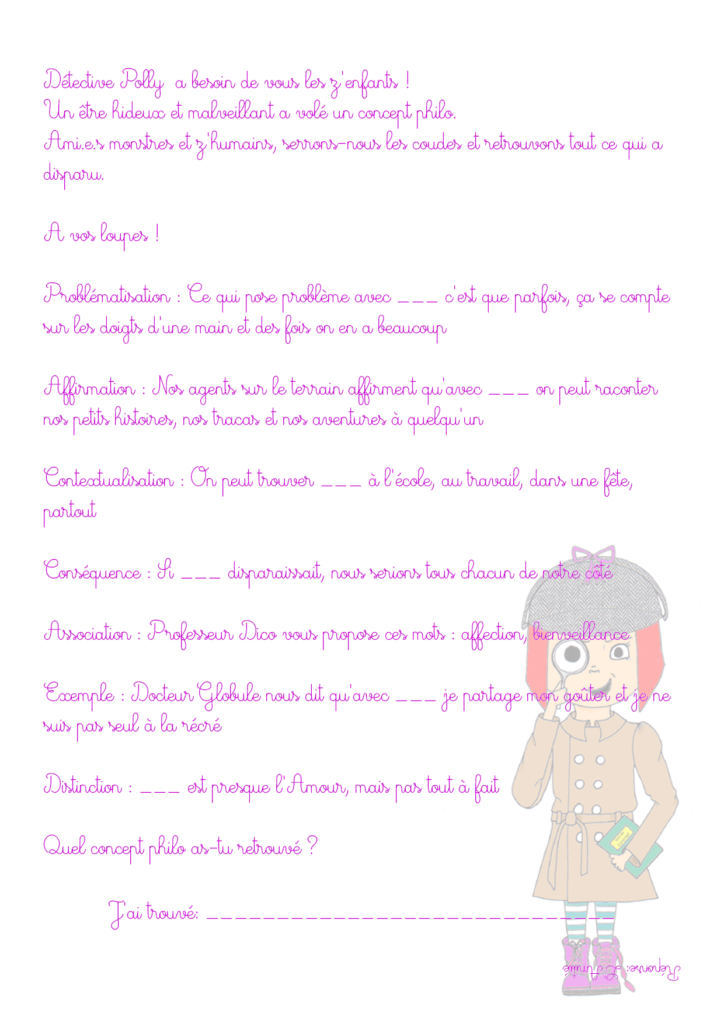 Détective Polly a besoin de vous les z'enfants !
Un être hideux et malveillant a volé un concept philo.
Ami.e.s monstres et z'humains, serrons-nous les coudes et retrouvons tout ce qui a
disparu.
A vos loupes !
Problématisation : Ce qui pose problème avec ___ c'est que parfois, ça se compte
sur les doigts d'une main et des fois on en a beaucoup
Affirmation : Nos agents sur le terrain affirment qu'avec ___ on peut raconter
nos petits histoires, nos tracas et nos aventures à quelqu'un
Contextualisation : On peut trouver ___ à l'école, au travail, dans une fête,
partout
Conséquence : Si ___ disparaissait, nous serions tous chacun de notre côté
Association : Professeur Dico vous propose ces mots : affection, bienveillance
Exemple : Docteur Globule nous dit qu'avec ___ je partage mon goûter et je ne
suis pas seul à la récré
Distinction : ___ est presque l'Amour, mais pas tout à fait
Quel concept philo as-tu retrouvé ?
J'ai trouvé: _____________________________
Réponse: L'Amitié